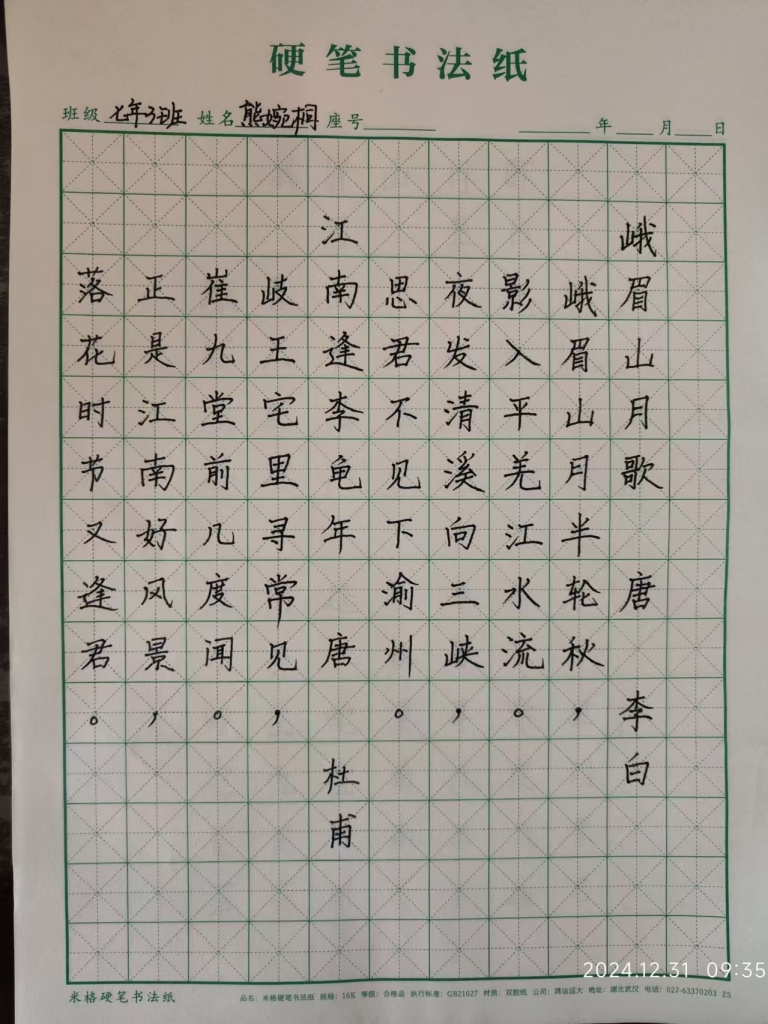 硬笔书法纸
班级 七年3班 姓名 熊婉桐 座号 年 月 日
峨眉山月歌 唐 李白
峨眉山月半轮秋，
影入平羌江水流。
夜发清溪向三峡，
思君不见下渝州。
江南逢李龟年 唐 杜甫
岐王宅里寻常见，
崔九堂前几度闻。
正是江南好风景，
落花时节又逢君。
2024.12.31 09:35
米格硬笔书法纸 品名：米格硬笔书法纸 规格：16K 等级：合格品 执行标准：GB21027 材质：双胶纸 公司：鸿运远大 地址：湖北武汉 电话：027-63370203 ZS